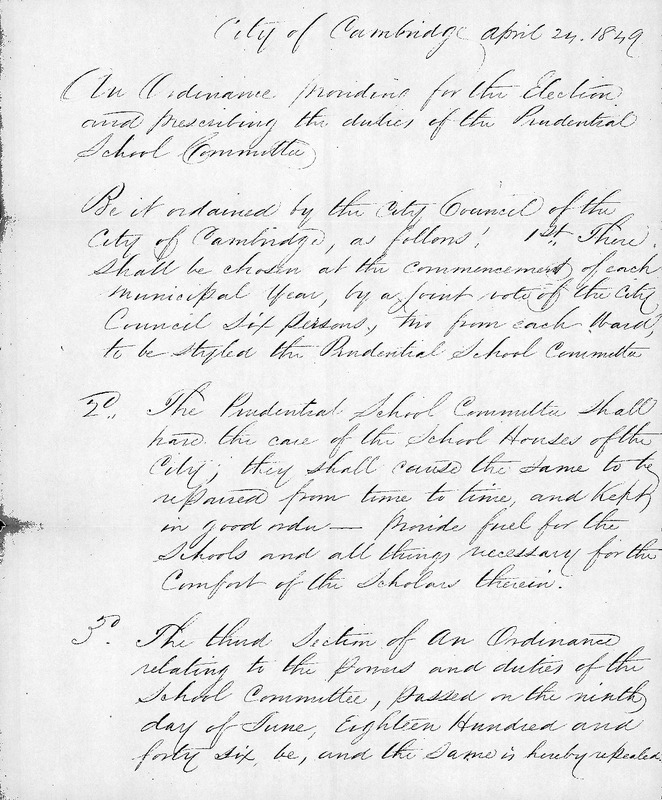 City of Cambridge April 24. 1849
An Ordinance providing for the Election
and prescribing the duties of the Prudential
School Committee
Be it ordained by the City Council of the
City of Cambridge, as follows: 1st. There
shall be chosen at the commencement of each
Municipal Year, by a joint vote of the City
Council six persons, two from each Ward,
to be styled the Prudential School Committee
2d. The Prudential School Committee shall
have the care of the School Houses of the
City; they shall cause the same to be
repaired from time to time, and kept
in good order — provide fuel for the
Schools and all things necessary for the
Comfort of the Scholars therein.
3d. The third Section of An Ordinance
relating to the powers and duties of the
School Committee, passed on the ninth
day of June, Eighteen Hundred and
forty six, be, and the same is hereby repealed.